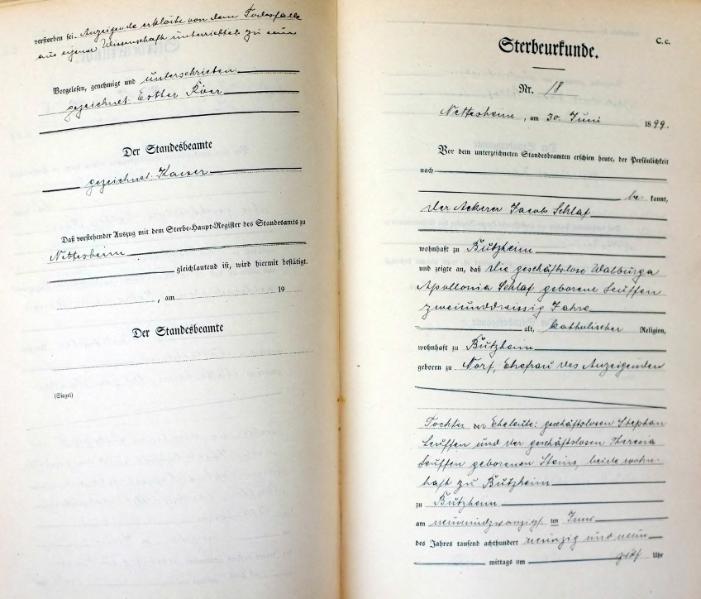 verstorben sei. Anzeigende erklärte von dem Todesfalle
aus eigener Wissenschaft unterrichtet zu sein
Vorgelesen, genehmigt und unterschrieben
gezeichnet Esther
Der Standesbeamte
gezeichnet Kaiser
Daß vorstehender Auszug mit dem Sterbe-Haupt-Register des Standesamts zu
Nettesheim
gleichlautend ist, wird hiermit bestätigt.
, am 19
Der Standesbeamte
(Siegel)
C. c.
Sterbeurkunde.
Nr. 18
Nettesheim, am 30. Juni 1899.
Vor dem unterzeichneten Standesbeamten erschien heute, der Persönlichkeit
nach
be kannt,
der Ackerer Jacob Schlaf
wohnhaft zu Butzheim
und zeigte an, daß die geschäftslose Walburga
Apollonia Schlaf geborene Leuffen
zweiunddreissig Jahre
alt, katholischer Religion,
wohnhaft zu Butzheim
geboren zu Norf, Ehefrau des Anzeigenden
Tochter der Eheleute: geschäftslosen Stephan
Leuffen und der geschäftslosen Theresa
Leuffen geborenen Steins, beide wohn-
haft zu Butzheim
zu Butzheim
am neunundzwanzigst en Juni
des Jahres tausend achthundert neunzig und neun
mittags um Uhr